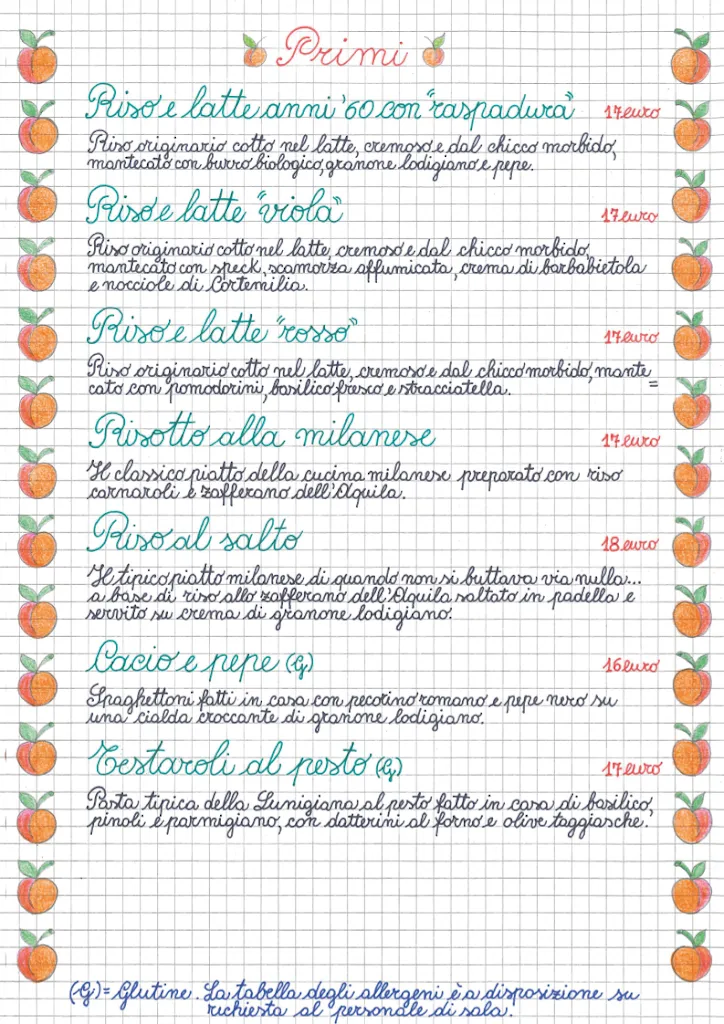 Primi
Riso e latte anni '60 con "raspadura" 17 euro
Riso originario cotto nel latte, cremoso e dal chicco morbido,
mantecato con burro biologico, granone lodigiano e pepe.
Riso e latte "viola" 17 euro
Riso originario cotto nel latte, cremoso e dal chicco morbido,
mantecato con speck, scamorza affumicata, crema di barbabietola
e nocciole di Cortemilia.
Riso e latte "rosso" 17 euro
Riso originario cotto nel latte, cremoso e dal chicco morbido, mante=
cato con pomodorini, basilico fresco e stracciatella.
Risotto alla milanese 17 euro
Il classico piatto della cucina milanese preparato con riso
carnaroli e zafferano dell'Aquila.
Riso al salto 18 euro
Il tipico piatto milanese di quando non si buttava via nulla...
a base di riso allo zafferano dell'Aquila saltato in padella e
servito su crema di granone lodigiano.
Cacio e pepe (G) 16 euro
Spaghettoni fatti in casa con pecorino romano e pepe nero su
una cialda croccante di granone lodigiano.
Testaroli al pesto (G) 17 euro
Pasta tipica della Lunigiana al pesto fatto in casa di basilico,
pinoli e parmigiano, con datterini al forno e olive taggiasche.
(G) = Glutine. La tabella degli allergeni è a disposizione su
richiesta al personale di sala.